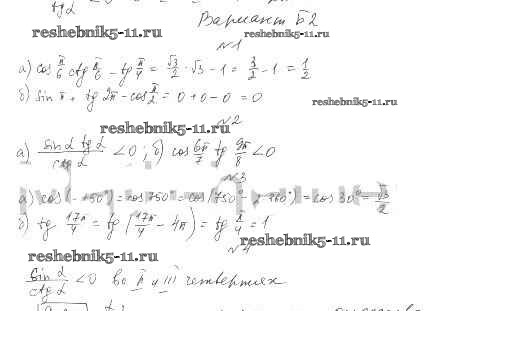 tg α
Вариант Б2
reshebnik5-11.ru reshebnik5-11.ru
№1
а) cos π/6 ctg π/6 - tg π/4 = √3/2 · √3 - 1 = 3/2 - 1 = 1/2
б) sin π + tg 2π - cos π/2 = 0 + 0 - 0 = 0
reshebnik5-11.ru
reshebnik5-11.ru №2
а) sin α tg α / ctg α < 0; б) cos 6π/7 tg 9π/8 < 0
№3
а) cos(-750°) = cos 750° = cos(750° - 2·360°) = cos 30° = √3/2
б) tg 17π/4 = tg (17π/4 - 4π) = tg π/4 = 1
reshebnik5-11.ru
№4
reshebnik5-11.ru
sin α / ctg α < 0 во II и III четвертях